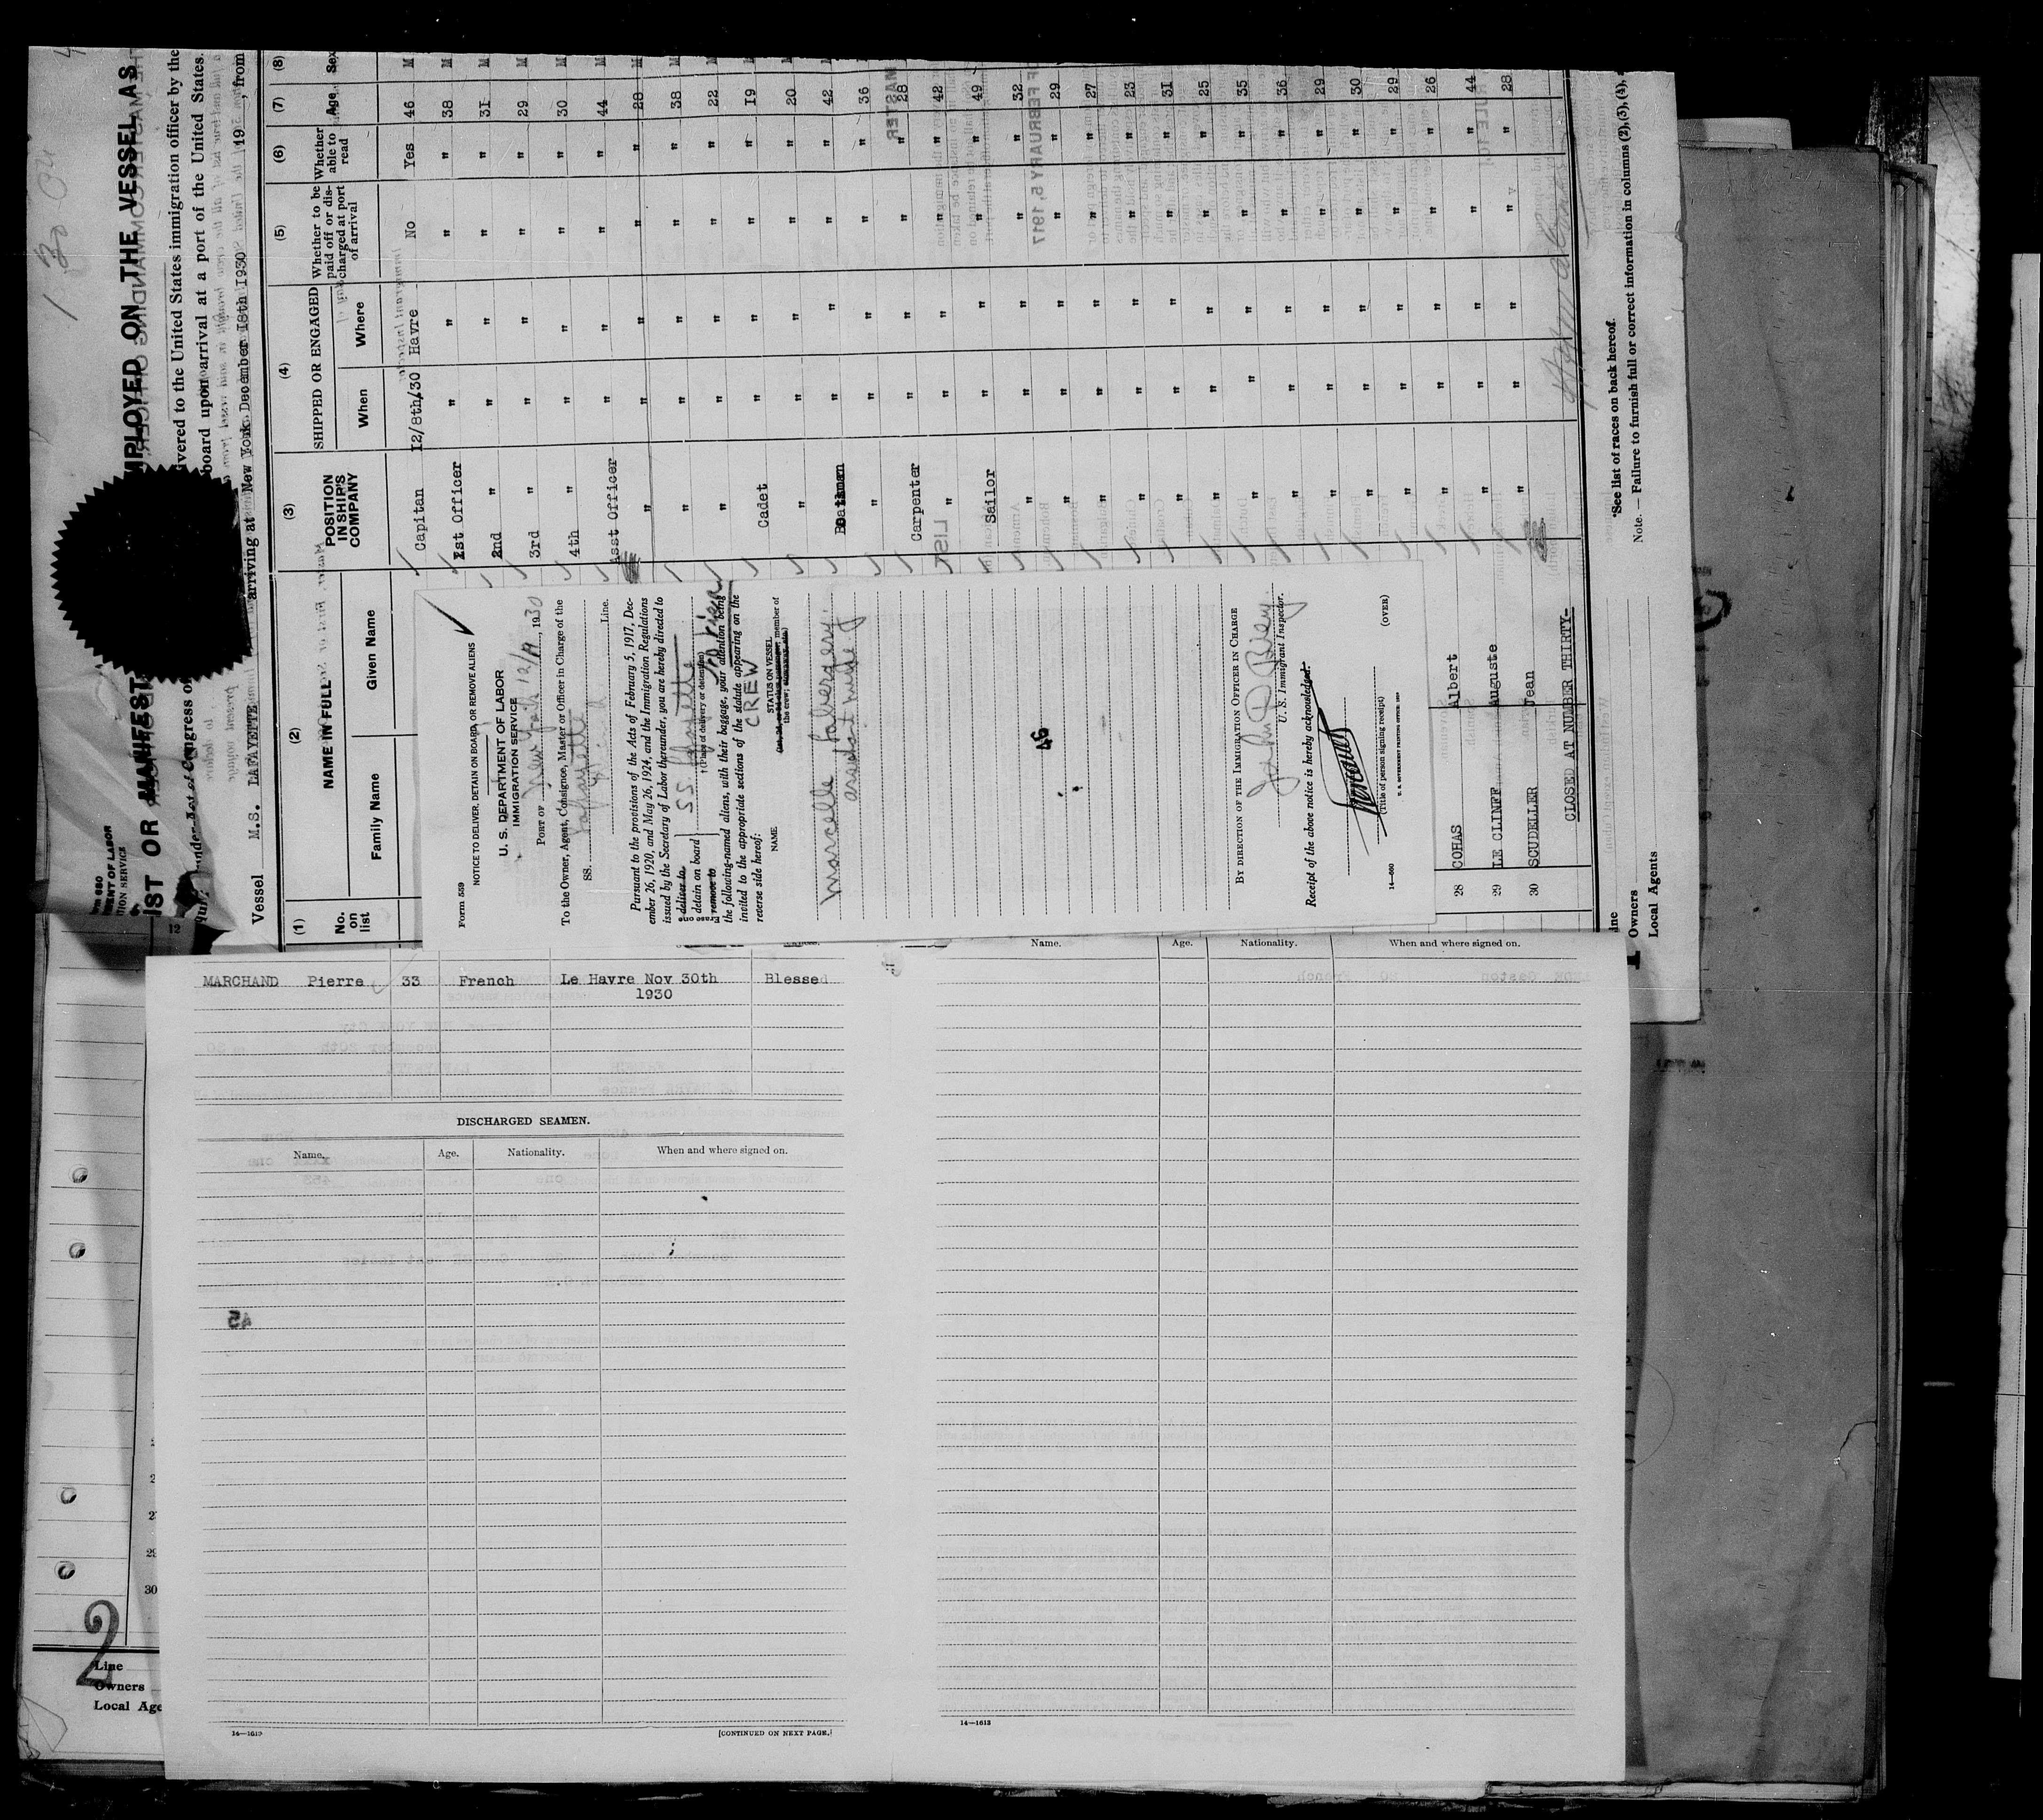 LIST OR MANIFEST
EMPLOYED ON THE VESSEL AS
delivered to the United States immigration officer by the
board upon arrival at a port of the United States.
Vessel M.S. LAFAYETTE arriving at New York December 18th 1930 19 , from
(1) (2) (3) (4) (5) (6) (7) (8)
No. on list
NAME IN FULL
Family Name Given Name
POSITION IN SHIP'S COMPANY
SHIPPED OR ENGAGED
When Where
Whether to be paid off or discharged at port of arrival
Whether able to read
Age
Sex
Capitan 12/8th/30 Havre No Yes 46 M
1st Officer " " " " 38 M
2nd " " " " " 31 M
3rd " " " " " 29 M
4th " " " " " 30 M
Asst Officer " " " " 44 M
" " " " " 28 M
" " " " " 38 M
" " " " " 22 M
Cadet " " " " 19 M
" " " " " 20
" " " " 42
" " " " " 36
Carpenter " " " " 28
" " " " " 42
Sailor " " " " 49
" " " " " 32
" " " " " 29
" " " " " 27
" " " " " 23
" " " " " 31
" " " " " 25
" " " " " 35
" " " " " 36
" " " " " 29
" " " " " 30
" " " " " 29
28 COHAS Albert " " " " " 26
29 LE CLINFF Auguste " " " " " 44
30 SCUDELLER Jean " " " " " 28
CLOSED AT NUMBER THIRTY-
*See list of races on back hereof.
Note. — Failure to furnish full or correct information in columns (2), (3), (4),
Owners
Local Agents
Form 559
NOTICE TO DELIVER, DETAIN ON BOARD, OR REMOVE ALIENS
U. S. DEPARTMENT OF LABOR
IMMIGRATION SERVICE
PORT OF New York 12/19, 1930
To the Owner, Agent, Consignee, Master or Officer in Charge of the
SS. Lafayette
Line.
Pursuant to the provisions of the Acts of February 5, 1917, Dec-
ember 26, 1920, and May 26, 1924, and the Immigration Regulations
issued by the Secretary of Labor thereunder, you are hereby directed to
deliver to
detain on board SS Lafayette
remove to
†(Place of delivery or detention)
the following-named aliens, with their baggage, your attention being
invited to the appropriate sections of the statute appearing on the
reverse side hereof:
CREW
NAME
STATUS ON VESSEL
member of
the crew;
Marcelle
assistant nurse
46
BY DIRECTION OF THE IMMIGRATION OFFICER IN CHARGE
John D Riley
U. S. Immigrant Inspector.
Receipt of the above notice is hereby acknowledged.
(Title of person signing receipt)
14—680
(OVER)
MARCHAND Pierre 33 French Le Havre Nov 30th Blessed
1930
DISCHARGED SEAMEN.
Name. Age. Nationality. When and where signed on.
45
14—1613
[CONTINUED ON NEXT PAGE.]
Name. Age. Nationality. When and where signed on.
14—1613
12
30
2
Line
Owners
Local Age